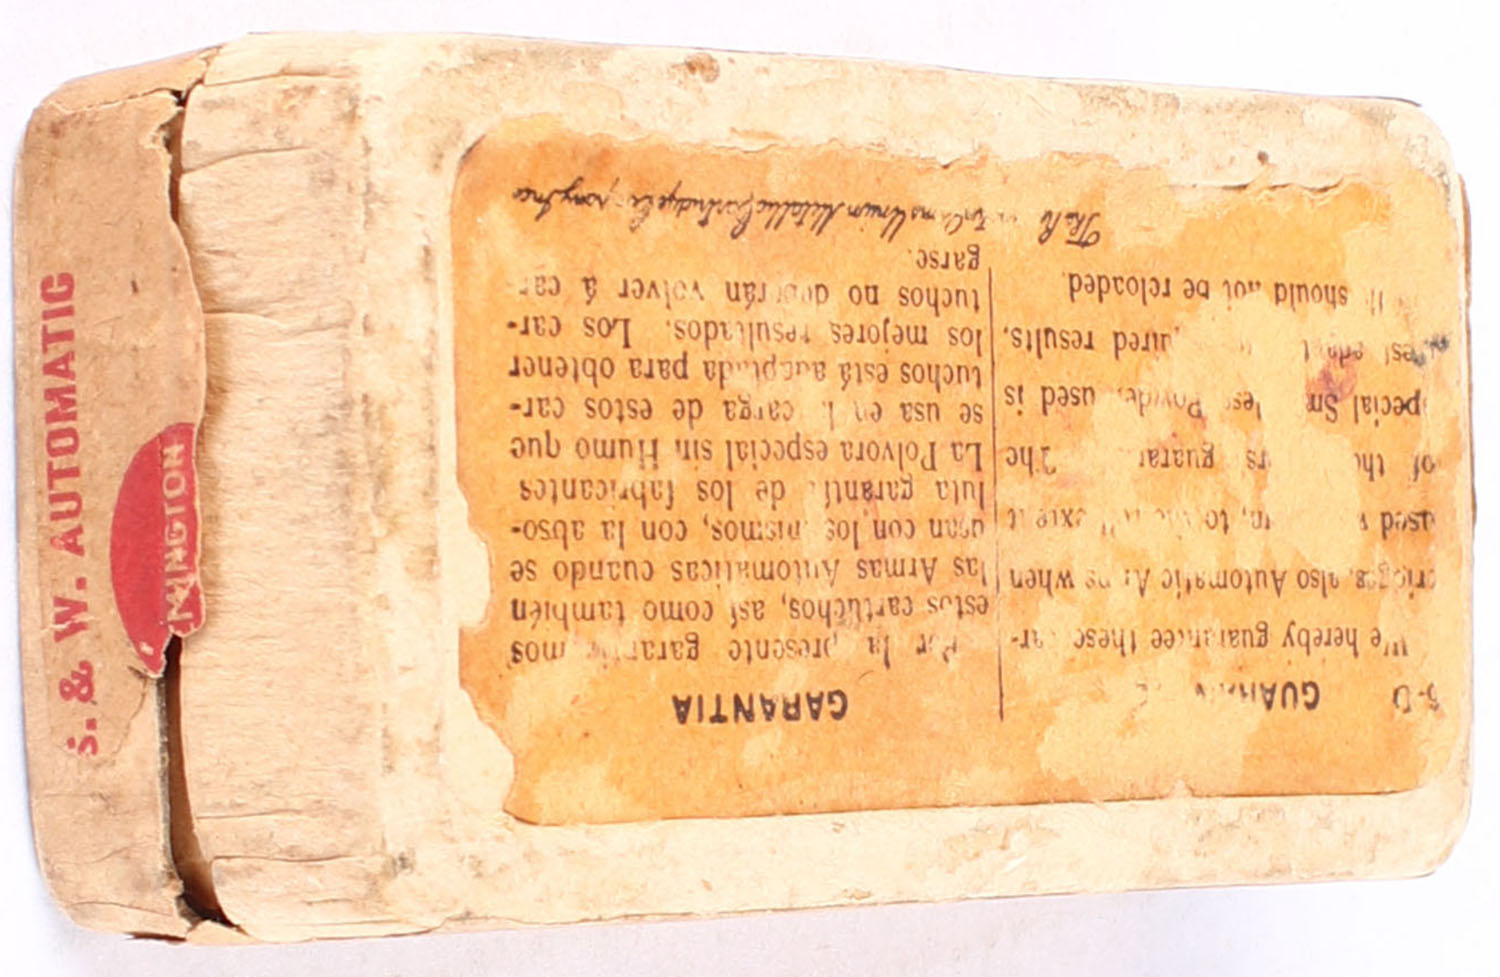 S. & W. AUTOMATIC
REMINGTON
GUARAN
We hereby guarantee these car-
tridges, also, Automatic Arms when
used to the full extent
of the guaran The
special Smokeless Powder used is
adapt required results.
should not be reloaded.
GARANTIA
Por la presente garantizamos
estos cartuchos, así como también
las Armas Automaticas cuando se
usan con los mismos, con la abso-
luta garantía de los fabricantes
La Polvora especial sin Humo que
se usa en la carga de estos car-
tuchos está adaptada para obtener
los mejores resultados. Los car-
tuchos no deberán volver á car-
garse.
The Remington Arms Union Metallic Cartridge Company Inc